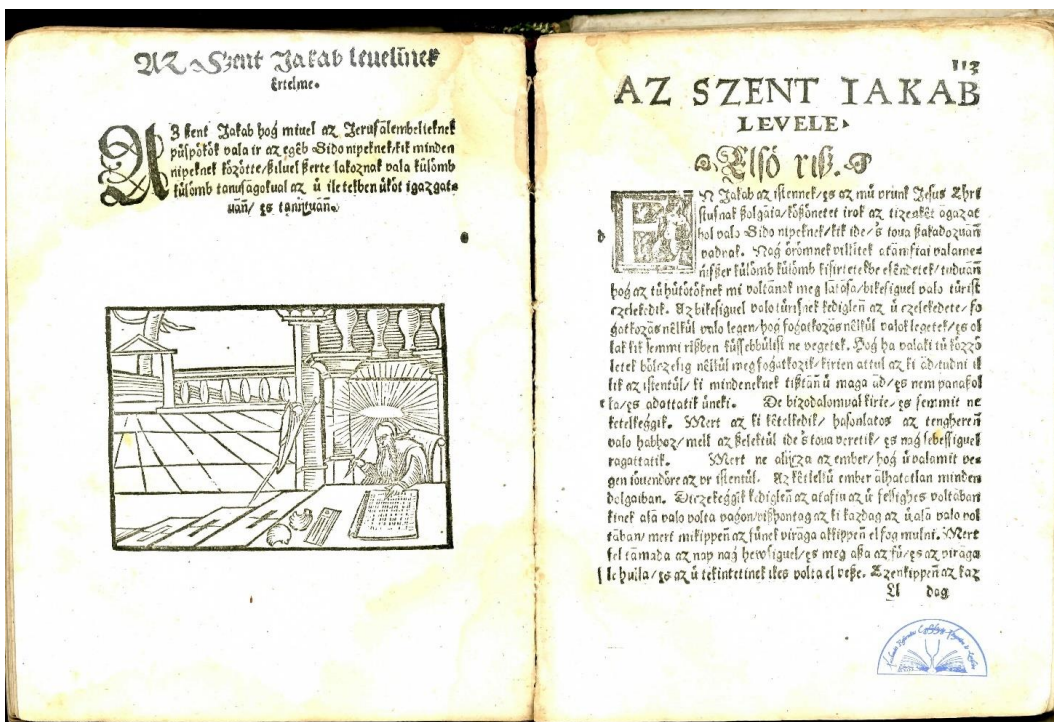 AZ Szent Jakab leuelīnek
ērtelme.
AZ ßent Jakab hog miuel az Jerusālembelieknek
püspökök vala ir az egēb Sido nipeknek/kik minden
nipeknek közötte/ßiluel ßerte lakoznak vala külömb
külömb tanusagokual az ü iletekben üköt igazgat⸗
uāń/ es tanijtuāń.
113
AZ SZENT IAKAB
LEVELE
Elsö riß.
EN Jakab az istennek/es az mü vrunk Jesus Chri
stusnak ßolgaia/kößönetet irok az tizenkēt āgazat
bol valo Sido nipeknek/kik ide/s toua ßakadozuāń
vadnak. Nag örömnek villitek atāmfiai valame⸗
nißßer külömb külömb kisirtetekbe esēndetek/tuduāń
hog az tü hütötöknek mi voltānak meg lātāsa/bikesiguel valo türist
czelekedik. Az bikesiguel valo türisnek kediglen az ü czelekedete/fo
gatkozās nēlkül valo legen/hog fogatkozās nēlkül valok legetek/es ol
lak kik semmi rißben küssebbülist ne vegetek. Hog ha valaki tü közzö
letek bölczesig nēlkül meg fogatkozik/kirien attul az ki ād/tudni il
lik az istentül/ ki mindeneknek tißtāń ü maga ād/es nem panaßol
ka/es adattatik üneki. De bizodalomual kirie/ es semmit ne
ketelkeggik. Mert az ki kētelkedik/ hasonlatos az tengheren
valo habhoz/melk az ßelektül ide s toua veretik/ es nag sebessiguel
ragattatik. Mert ne alijcza az ember/ hog ü valamit ve⸗
gen iouendöre az vr istentül. Az kētlelkü ember ālhatatlan minden
dolgaiban. Diczekeggik kediglen az atafiu az ü felsighes voltāban
kinek alā valo volta vagon/vißßontag az ki kazdag az ü alā valo vol
tāban/ mert mikippen az fünek virāga akkippen el fog mulni. Mert
fel tāmada az nap nag hewsiguel/es meg aßa az fü/es az virāga
le hulla/es az ü tekintetinek ikes volta el veße. Ezenkippen az kaz
A dag